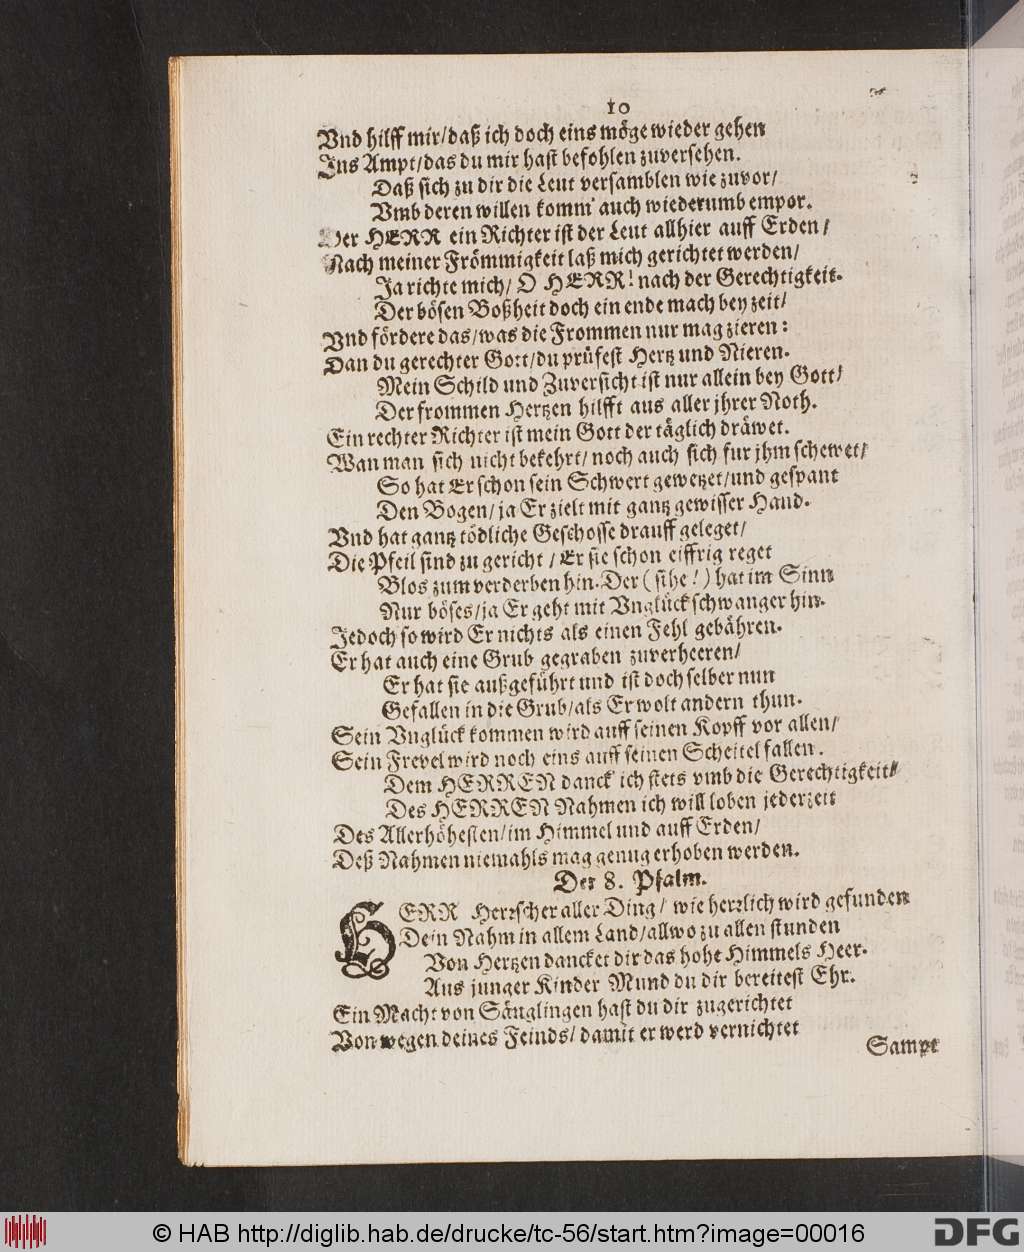 10
Vnd hilff mir/daß ich doch eins möge wieder gehen
Ins Ampt/das du mir hast befohlen zuversehen.
Daß sich zu dir die Leut versamblen wie zuvor/
Vmb deren willen komm' auch wiederumb empor.
Der HERR ein Richter ist der Leut allhier auff Erden/
Nach meiner Frömmigkeit laß mich gerichtet werden/
Ja richte mich/ O HERR! nach der Gerechtigkeit.
Der bösen Boßheit doch ein ende mach bey zeit/
Vnd fördere das/was die Frommen nur mag zieren:
Dan du gerechter Gott/du prüfest Hertz und Nieren.
Mein Schild und Zuversicht ist nur allein bey Gott/
Der frommen Hertzen hilfft aus aller jhrer Noth.
Ein rechter Richter ist mein Gott der täglich dräwet.
Wan man sich nicht bekehrt/noch auch sich fur jhm schewet/
So hat Er schon sein Schwert gewetzet/und gespant
Den Bogen/ja Er zielt mit gantz gewisser Hand.
Vnd hat gantz tödliche Geschosse drauff geleget/
Die Pfeil sind zu gericht / Er sie schon eiffrig reget
Blos zum verderben hin. Der (sihe!) hat im Sinn
Nur böses/ja Er geht mit Vnglück schwanger hin.
Jedoch so wird Er nichts als einen Fehl gebähren.
Er hat auch eine Grub gegraben zuverheeren/
Er hat sie außgeführt und ist doch selber nun
Gefallen in die Grub/als Er wolt andern thun.
Sein Vnglück kommen wird auff seinen Kopff vor allen/
Sein Frevel wird noch eins auff seinen Scheitel fallen.
Dem HERREN danck' ich stets vmb die Gerechtigkeit/
Des HERREN Nahmen ich will loben jederzeit
Des Allerhöhesten/im Himmel und auff Erden/
Deß Nahmen niemahls mag genug erhoben werden.
Der 8. Psalm.
HERR Herrscher aller Ding/ wie herrlich wird gefunden
Dein Nahm in allem Land/allwo zu allen stunden
Von Hertzen dancket dir das hohe Himmels Heer.
Aus junger Kinder Mund du dir bereitest Ehr.
Ein Macht von Säuglingen hast du dir zugerichtet
Von wegen deines Feinds/ damit er werd vernichtet
Sampt
© HAB http://diglib.hab.de/drucke/tc-56/start.htm?image=00016
DFG